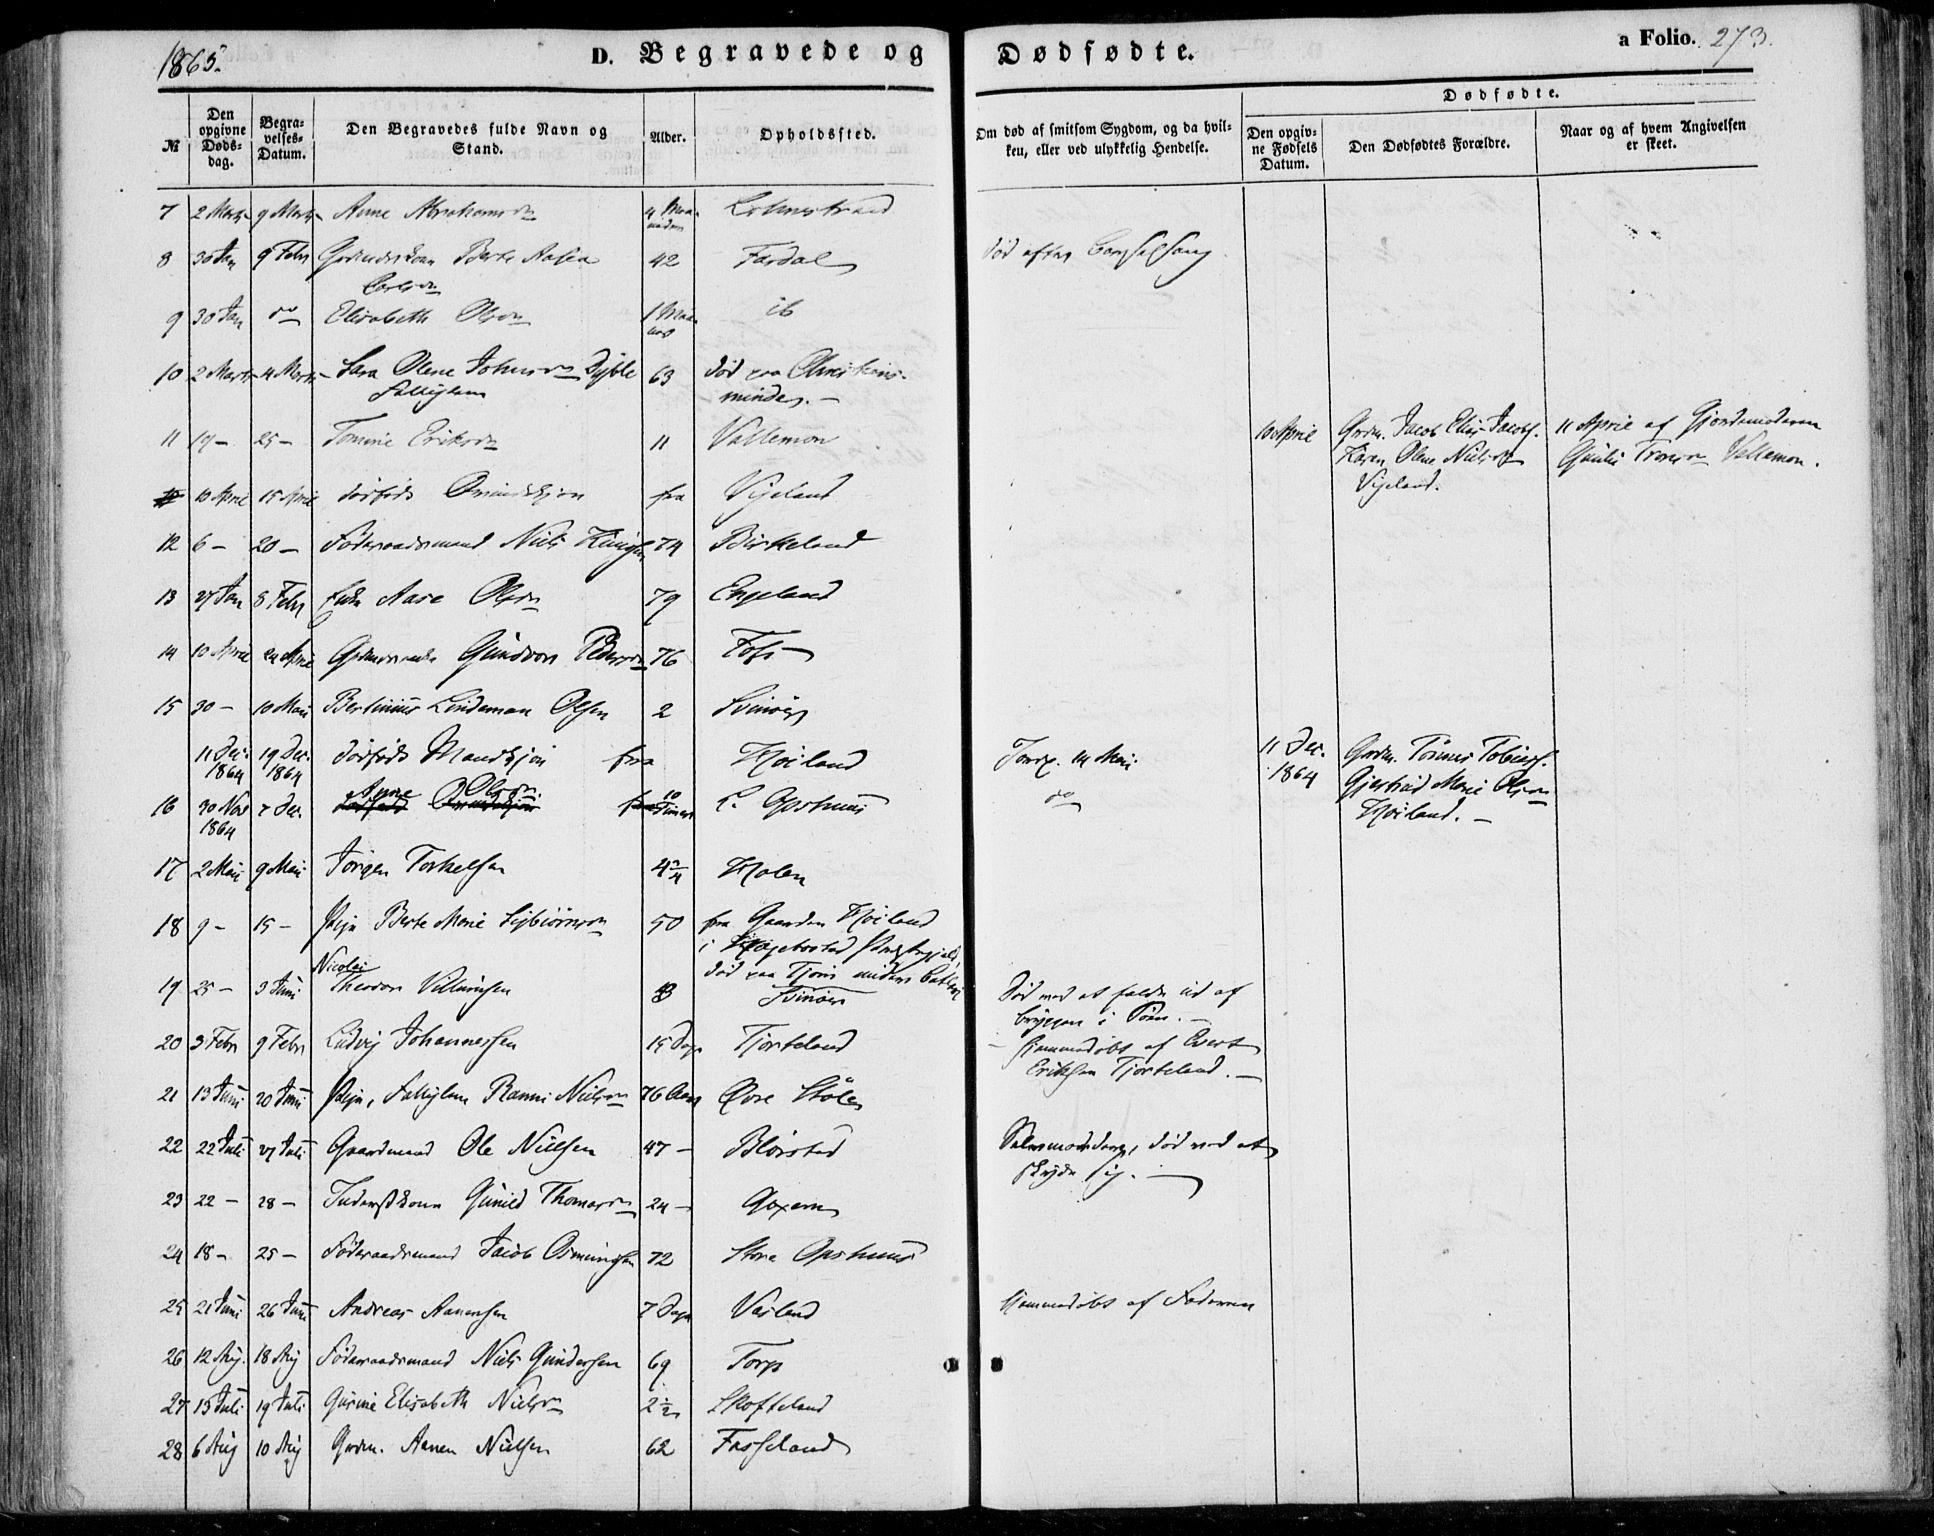 1865.
D. Begravede og Dødfødte.
a Folio. 273.
№
Den opgivne Døds-dag.
Begra-velses-Datum.
Den Begravedes fulde Navn og Stand.
Alder.
Opholdssted.
Om død af smitsom Sygdom, og da hvil-ken, eller ved ulykkelig Hendelse.
Dødfødte.
Den opgiv-ne Fødsels Datum.
Den Dødfødtes Forældre.
Naar og af hvem Angivelsen er skeet.
7 2 Marts 9 Marts Anne Abrahamsdn 4 Maa-neder
8 30 Jan 9 Febr Gaardmdskone Berte Aasea 42 Fardal død efter Barselseng
Carlsdn
9 30 Jan do Elisabeth Olsdn 1 Maa-ned ib
10 2 Marts 4 Marts Sara Olene Johnsdn Dyble 63 død paa Christians-
Fattiglem minde. —
11 19 — 25 — Tomine Eriksdn 11 Vallemon
10 April Grdm. Jacob Elias Jacobs. 11 April af Gjordemoderen
Karen Olene Nielsdn Gunild Tronsdn Vallemon.
Vigeland.
10 April 15 April dødfødt Qvindekjøn fra Vigeland
12 6 — 20 — Føderaadsmand Niels 74 Birkeland
13 27 Jan 8 Febr Enke Aase Olsdn 79 Engeland
14 10 April 24 April Gundvor Pedersdn 76 Foss
15 30 — 10 Mai Bertinius Lindeman Olsen 2 Svinøer
11 Dec. 1864 19 Dec. 1864 dødfødt Mandkjøn fra Høiland Jordp. 14 Mai. 11 Dec. 1864 Grdm. Tønnes Tobias.
Gjertrud Marie Olsdn
Høiland. —
16 30 Nov 1864 7 Dec. Anne Olsdn. 10 Timer L. Opshuus do
17 2 Mai 9 Mai Jørgen Torkelsen 4 ¾ Holen
18 9 — 15 — Pige Berte Marie Sigbiørnsdn 50 fra Gaarden Høiland
i Hægebostad Præstegjeld,
død paa Tjom
19 25 — 3 Juni Nicolai Theodor Villumsen 8 Svinøer Død ved at falde ud af
Bryggen i Søen. —
20 3 Febr 9 Febr Ludvig Johannessen 15 Dage Tjorteland — hjemmedøbt af Evert
Eriksen Tjorteland. —
21 13 Juni 20 Juni Pige, Fattiglem Rannei Nielsdn 76 Aar Øvre Støle
22 22 Juli 27 Juli Gaardmand Ole Nielsen 47 — Blørstad Selvmorder, død ved at
skyde sig. —
23 22 — 28 — Inderstkone Gunild Thomasdn 24 — Goxem
24 18 — 25 — Føderaadsmand Jacob Osmundsen 72 Store Opshuus
25 21 Juni 26 Juni Andreas Aanensen 7 Dage Valand hjemmedøbt af Faderen
26 12 Aug. 18 Aug Føderaadsmand Niels Gundersen 69 Torp
27 13 Juli 19 Juli Gurine Elisabeth Nielsdn 2 ½ Skofteland
28 6 Aug 10 Aug Grdm. Aanen Nielsen 62 Fasseland